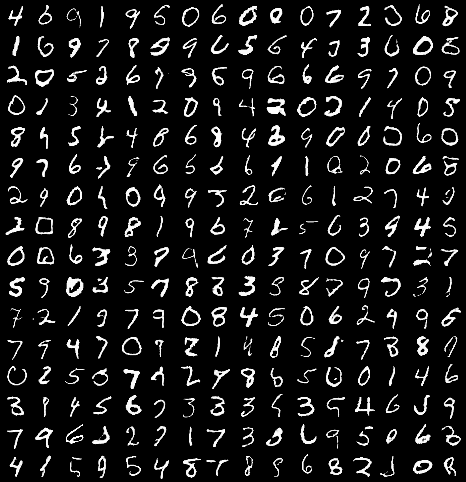 4 6 9 1 9 5 0 6 0 0 0 7 2 3 6 8
1 6 9 7 8 5 9 6 5 6 4 7 3 0 0 8
2 0 5 2 6 7 9 5 9 6 6 6 9 7 0 9
0 1 3 4 1 2 0 9 4 2 0 2 1 4 0 5
8 4 5 6 4 8 6 8 4 3 9 0 0 0 6 0
9 7 6 9 6 5 6 6 1 1 0 2 0 6 8
2 9 0 4 0 9 9 5 2 6 6 1 2 7 4 9
2 0 8 9 8 1 9 6 7 1 5 0 3 9 4 5
0 0 6 3 3 7 9 6 0 3 7 0 9 7 2 7
5 9 0 3 5 7 8 8 3 3 8 7 9 7 3 1
7 2 1 9 7 9 0 8 4 5 0 6 2 9 9 5
7 9 4 7 0 7 2 1 4 8 5 8 7 3 8 9
0 2 5 0 7 9 2 7 8 6 5 0 0 1 4 6
3 9 4 5 6 7 3 3 3 5 3 5 4 6 5 9
7 9 6 2 2 7 1 7 3 3 6 9 5 0 6 3
4 1 5 9 5 4 8 7 8 8 6 8 2 1 0 8